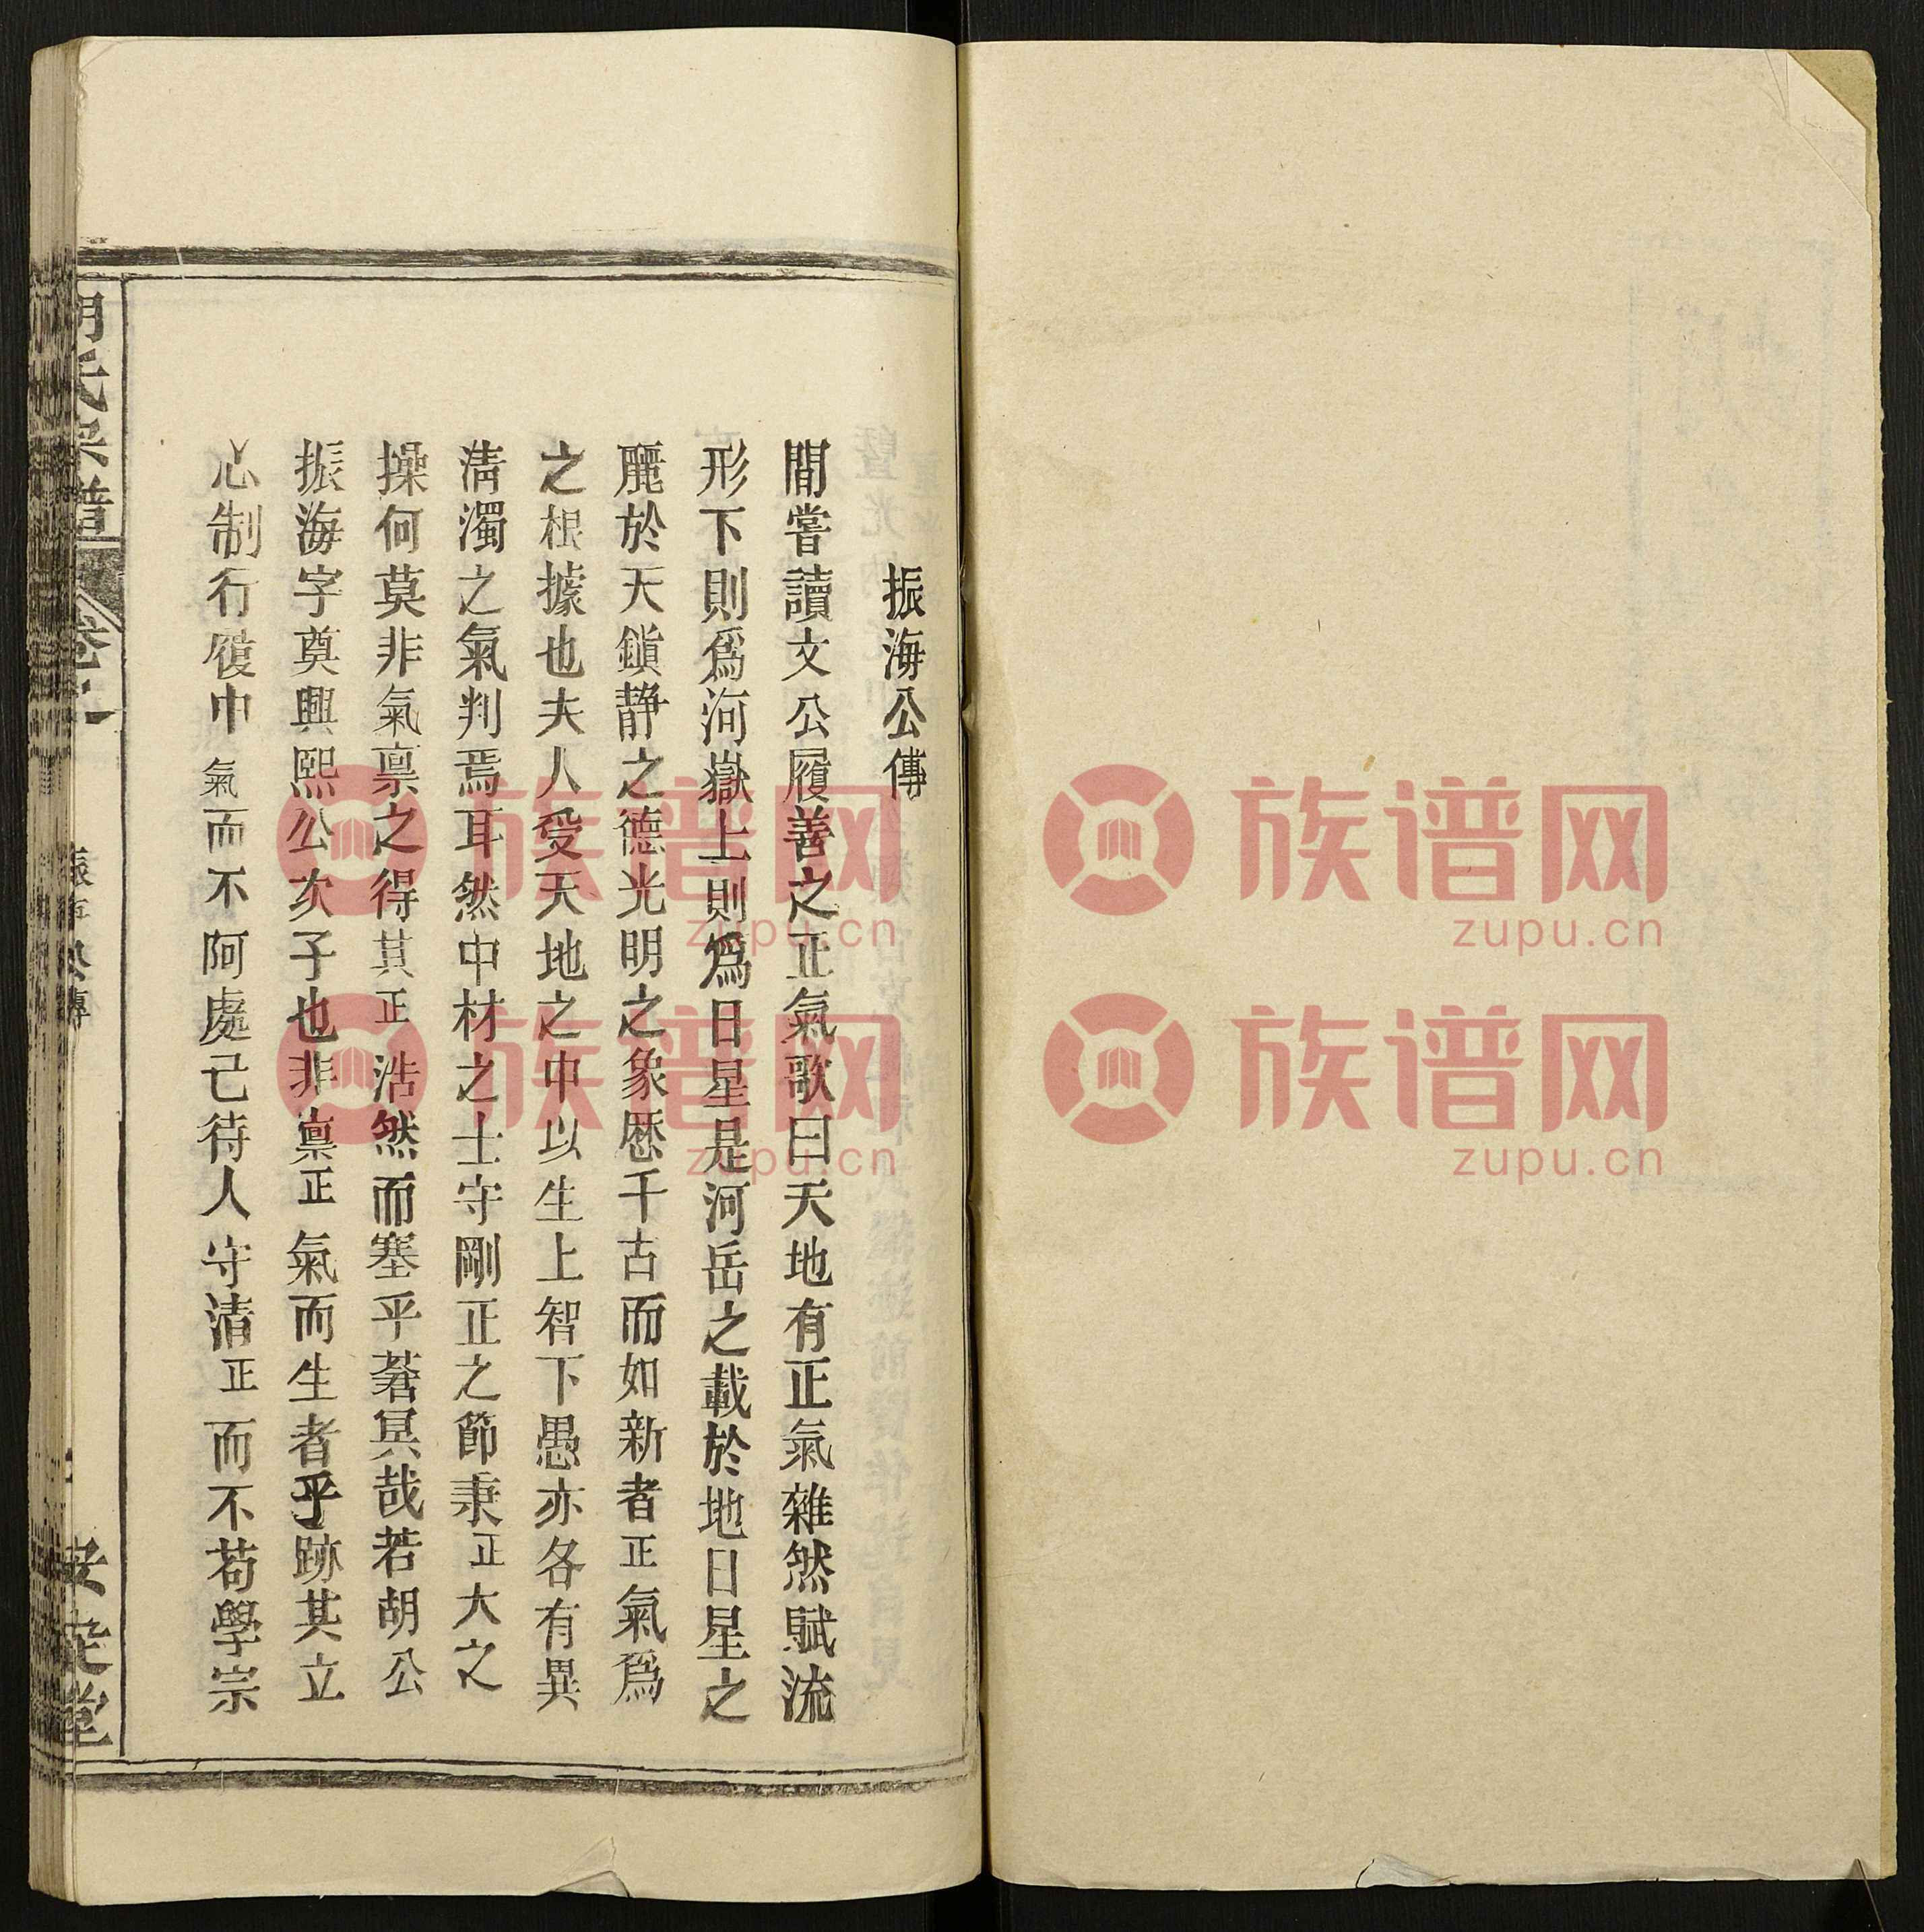 振海公傳
間嘗讀文公履善之正氣歌曰天地有正氣雜然賦流
形下則爲河嶽上則爲日星是河岳之載於地日星之
麗於天鎮静之德光明之象歷千古而如新者正氣爲
之根據也夫人受天地之中以生上智下愚亦各有異
清濁之氣判焉耳然中材之士守剛正之節秉正大之
操何莫非氣禀之得其正浩然而塞乎蒼冥哉若胡公
振海字奠興熙公次子也非禀正氣而生者乎跡其立
心制行履中氣而不阿處己待人守清正而不苟學宗
胡氏宗譜
振海公傳
安定堂
族谱网
zupu.cn
族谱网
zupu.cn
族谱网
zupu.cn
族谱网
zupu.cn